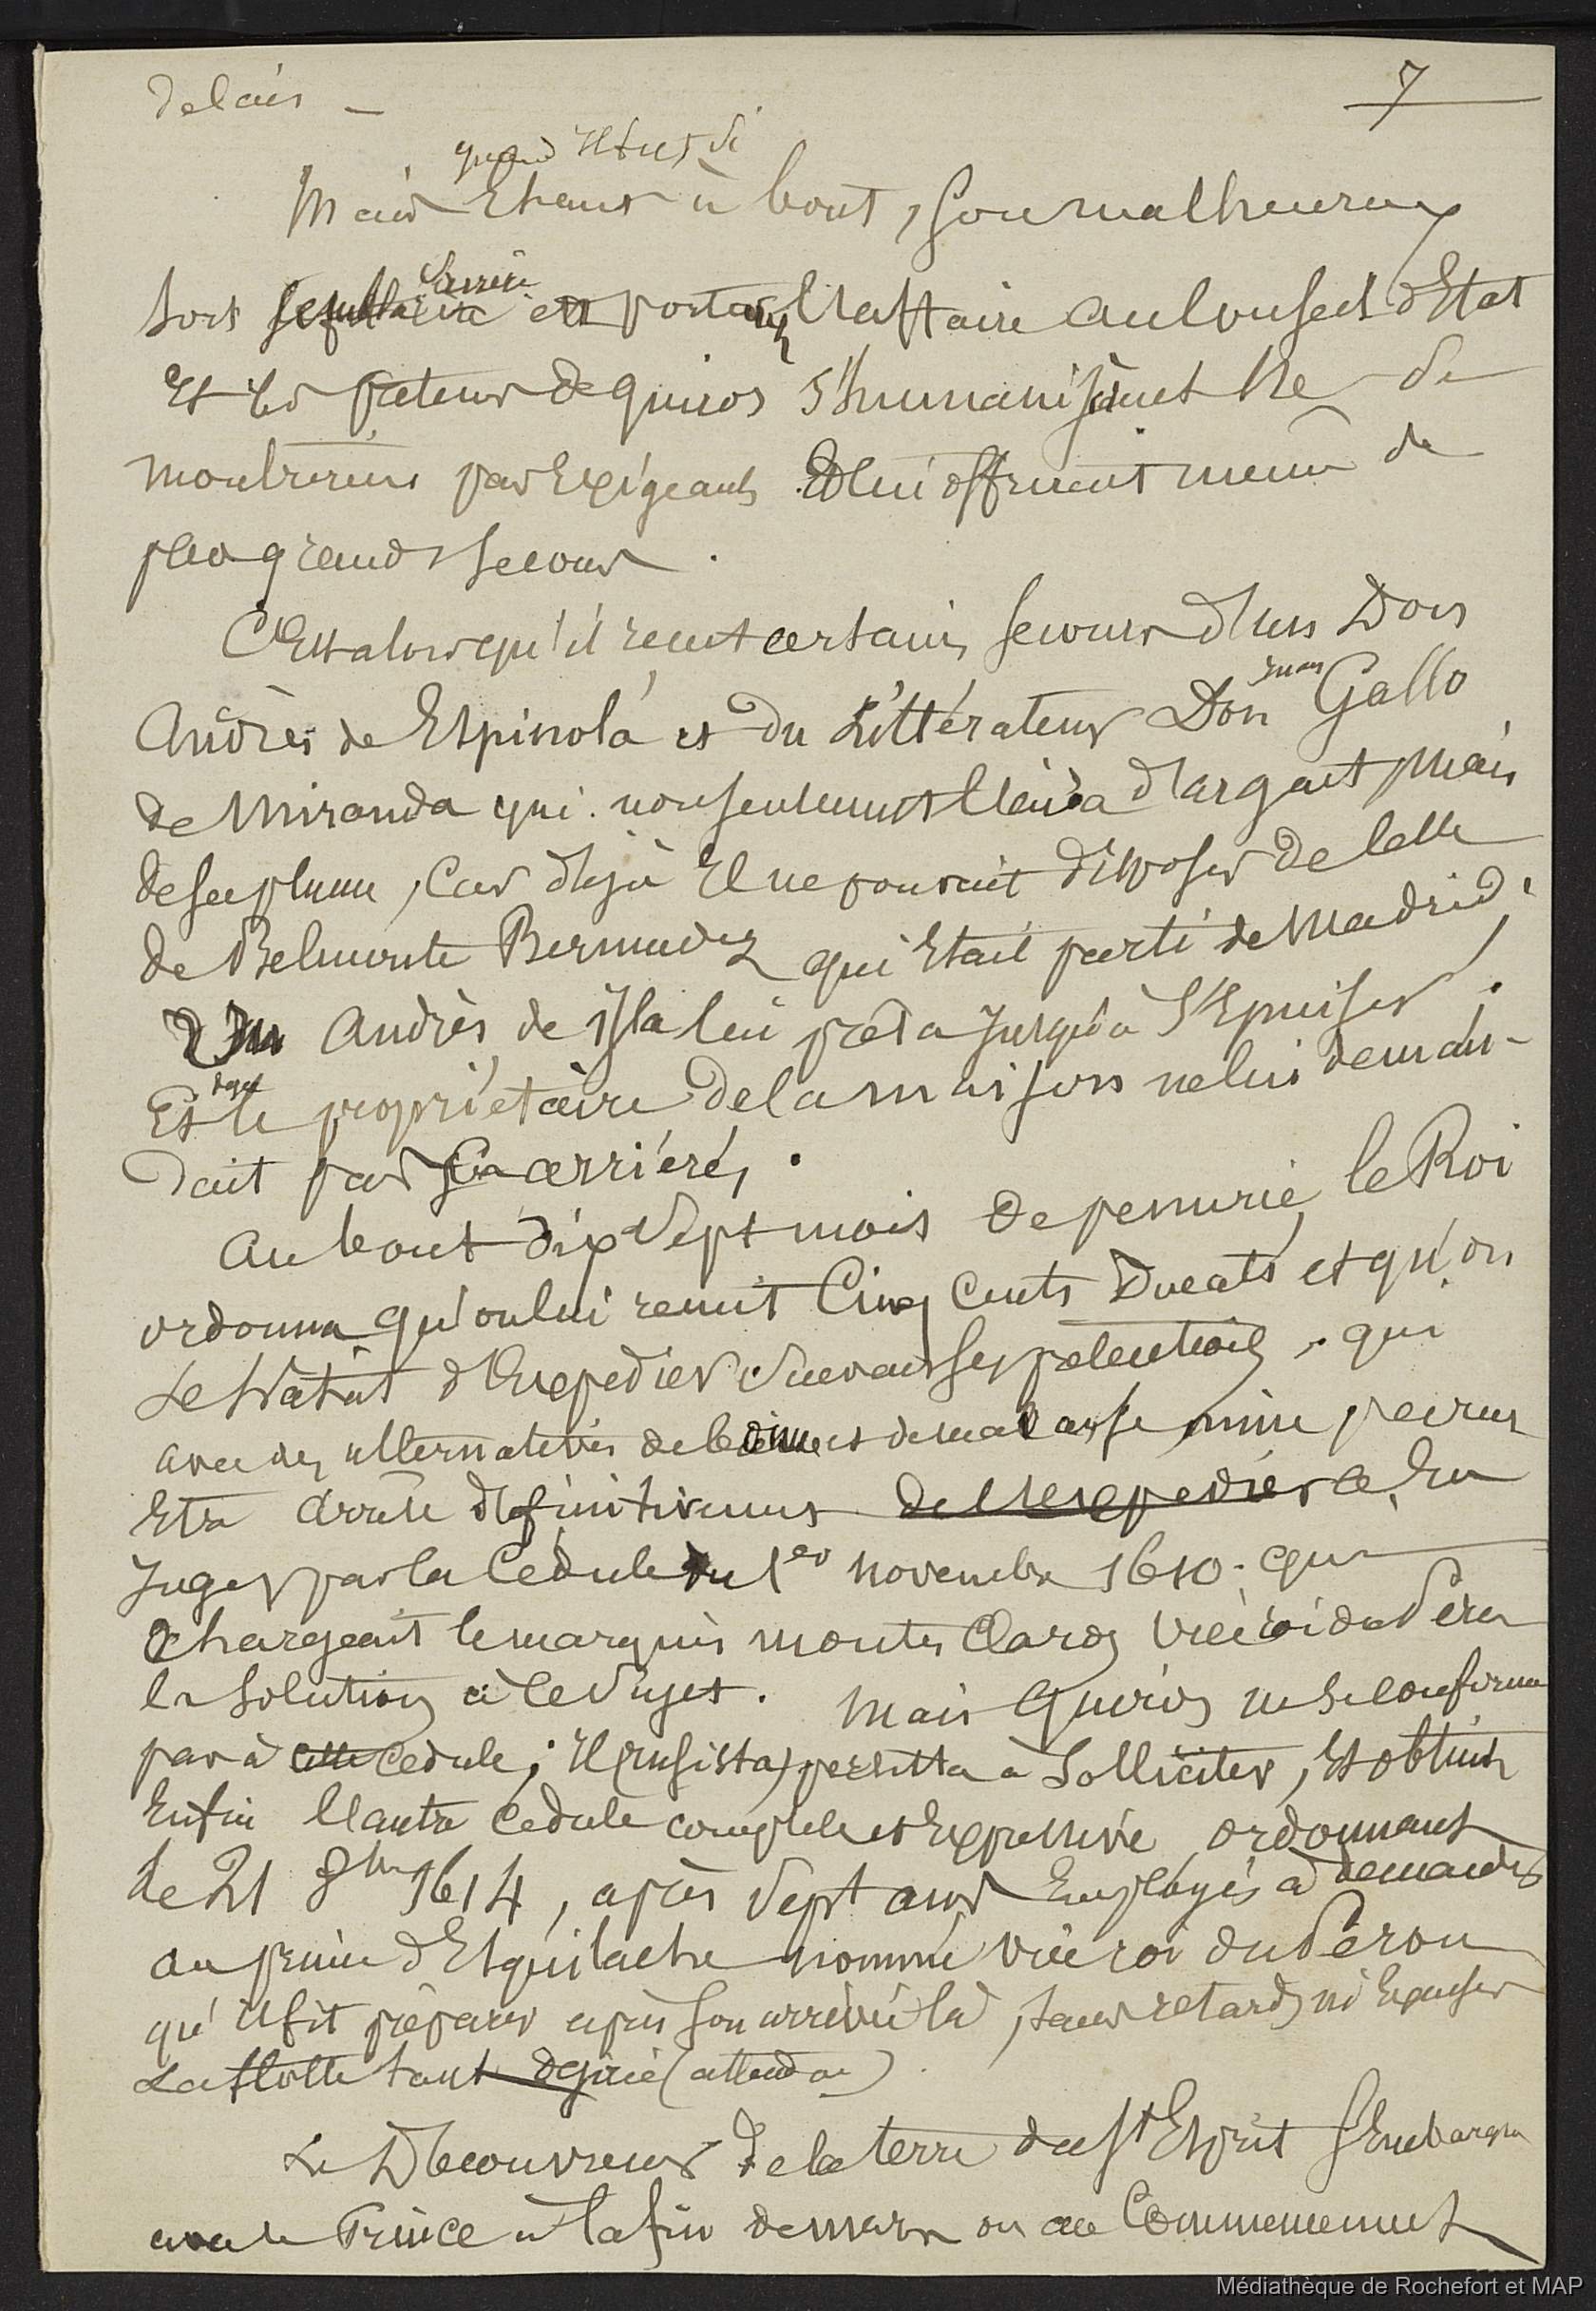 delais —
7
quand il fut si
Mais Etant à bout, son malheureux
sort portant l'affaire au Conseil d'Etat
Et les preteurs de Quiros s'humanisèrent ne se
montrèrent pas Exigeants Et lui offrirent même de
plus grands secours.
C'Est alors qu'il reçut certains secours d'un Don
juan
Andrès de Espinola et du Littérateur Don Gallo
de Miranda qui non seulement l'aida d'argent mais
de sa plume, car déjà El ne pouvait disposer de celle
de Belmonte Bermudez qui était parti de Madrid;
Andrès de Isla lui prêta jusqu'à s'Epuiser;
Et le propriétaire de la maison ne lui deman-
dait pas arrièrés.
Au bout dix sept mois de penurie, le Roi
ordonna qu'on lui remit Cinq Cents Ducats et qu'on
se hatat d'Expedier suivant ses pretentions, qui
avec des alternatives de bonne et de mauvaise mine parut
Etre arrêté définitivement de l'expedier
Juger par la Cédule du 1er novembre 1610. qui
chargeait le marquis montes Claros vice roi du Perou
la solution à ce sujet. Mais Quiros ne se conforma
pas à cette cedule; il (insista) persista à Solliciter, Et obtint
Enfin l'autre Cedule complete et Expressive ordonnant
le 21 8bre 1614, après sept ans Employés à demander
au prince d'Esquilache nommé vice roi du Pérou
qu'il fit préparer après son arrivée là, sans retards ni Excuses
La flotte tant desirée (attendue).
Le Découvreur de la terre du St Esprit s'Embarqua
avec le Prince à la fin de mars ou au Commencement
Médiathèque de Rochefort et MAP